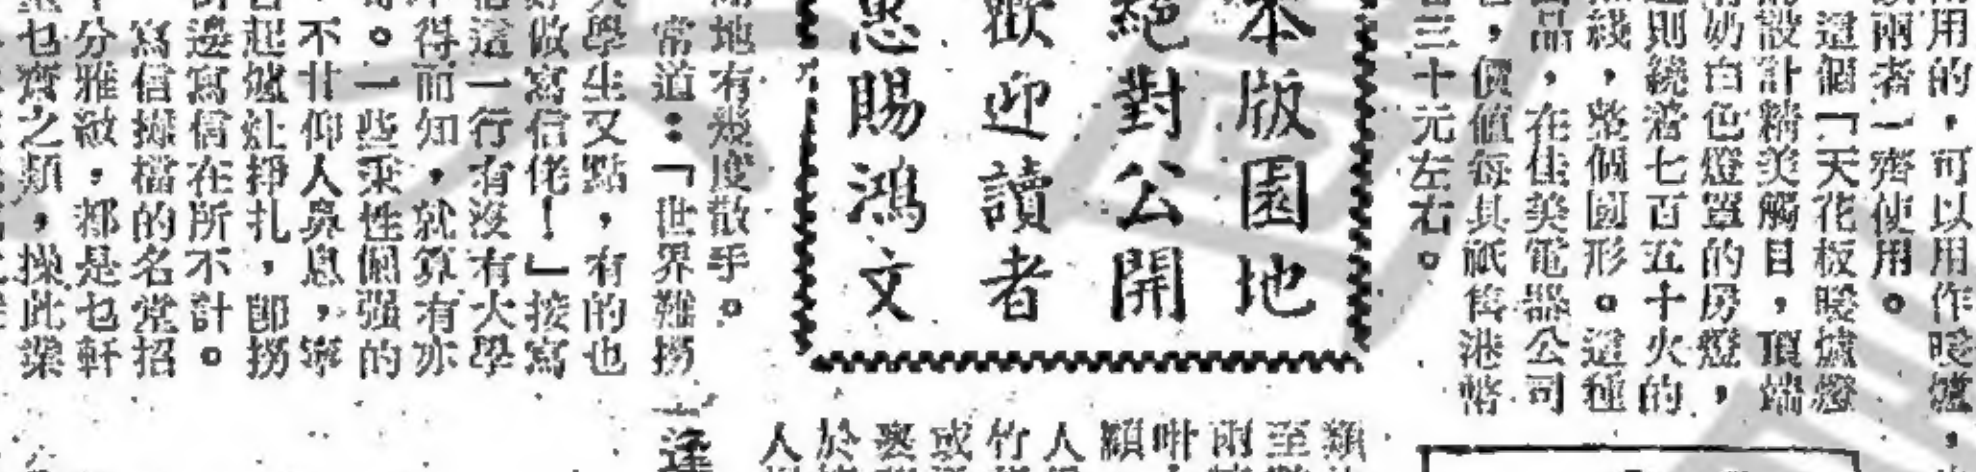 用的，可以用作暖爐，
兩者一齊使用。
這個「天花板暖爐燈
設計精美觸目，頂端
奶白色燈罩的房燈，
則繞着七百五十火的
綫，整個圓形。這種
品，在佳美電器公司
，價值每具祇售港幣
三十元左右。
本版園地
絕對公開
歡迎讀者
惠賜鴻文
地有幾度散手。
常道：「世界難撈
學生又點，有的也
做寫信佬！」接寫
這一行有沒有大學
得而知，就算有亦
。一些秉性倔强的
不甘仰人鼻息，寧
起爐灶掙扎，卽撈
邊寫信在所不計。
寫信攤檔的名堂招
分雅緻，都是乜軒
乜齋之類，操此業
類
至
兩
咁
顧
人
竹
或
裏
於
人
逢